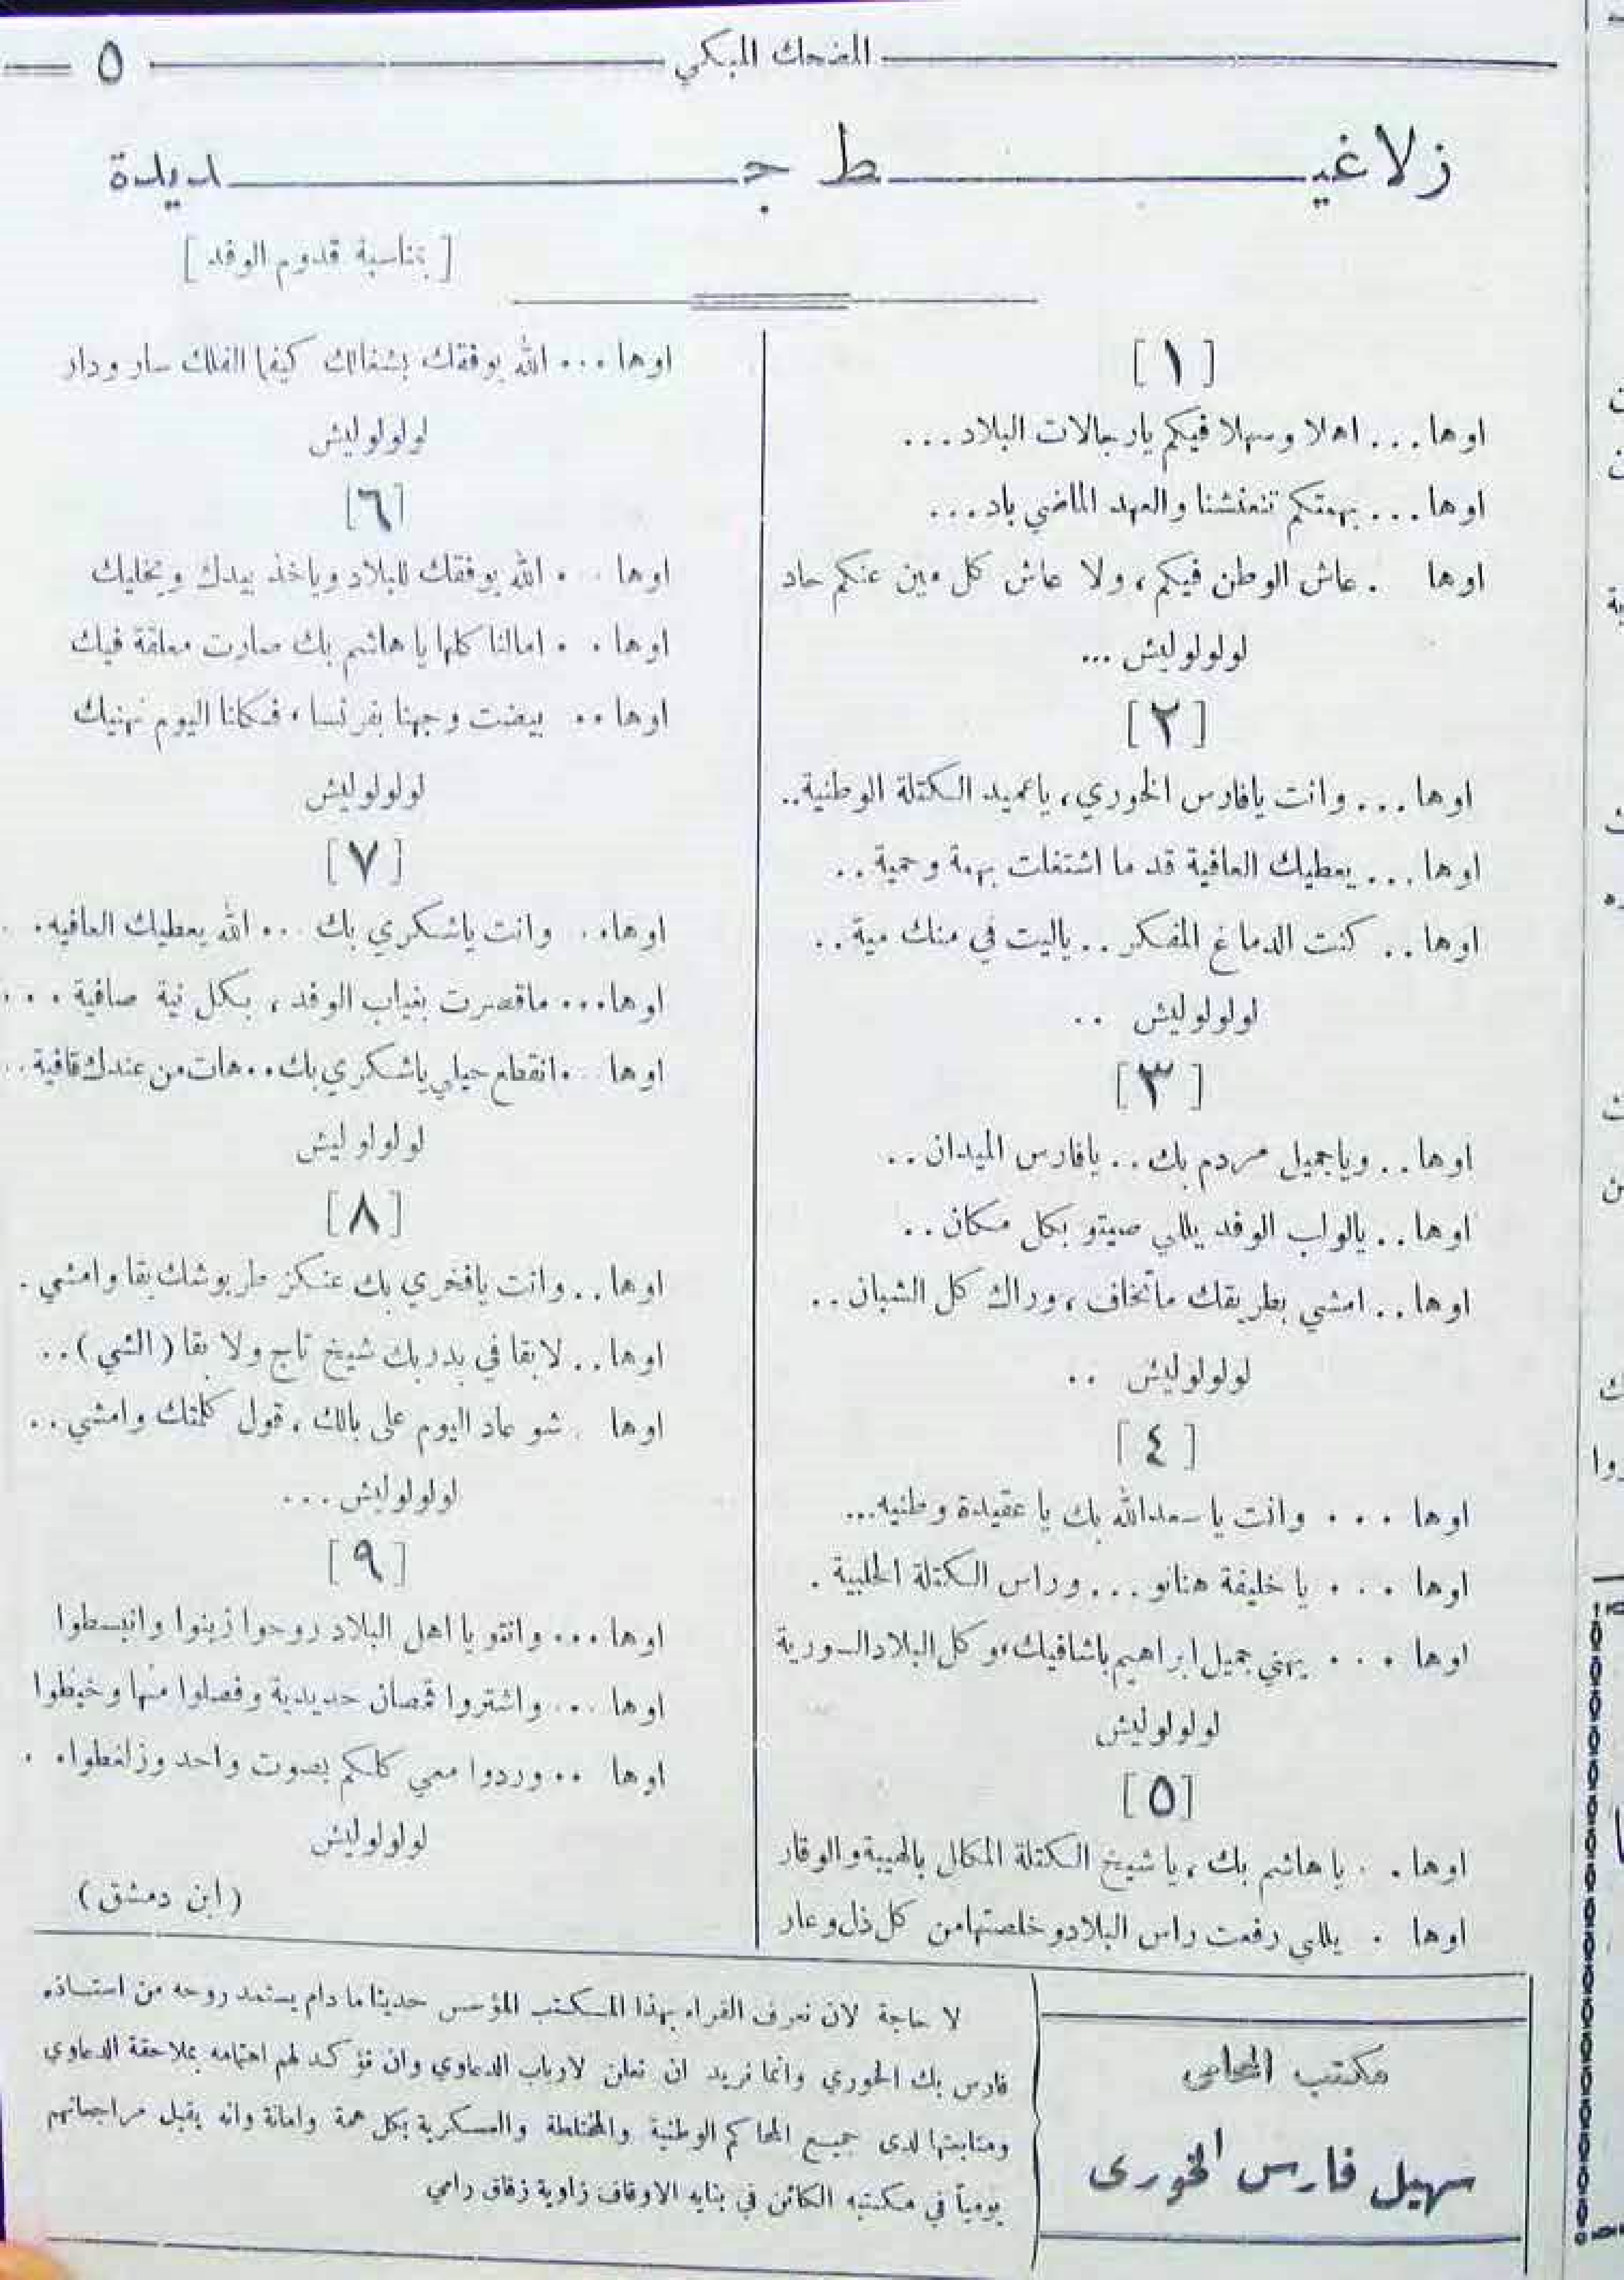 المضحك المبكي
٥
زلاغيط جديدة
[ بمناسبة قدوم الوفد ]
[ ١ ]
اوها ... اهلا وسهلا فيكم يارجالات البلاد ...
اوها ... بهمتكم تنعنشنا والعهد الماضي باد ...
اوها . عاش الوطن فيكم، ولا عاش كل مين عنكم حاد
لولولوليش ...
[ ٢ ]
اوها ... وانت يافارس الخوري، ياعميد الكتلة الوطنية ..
اوها ... يعطيك العافية قد ما اشتغلت بهمة وحمية ..
اوها .. كنت الدماغ المفكر .. ياليت في منك مية ..
لولولوليش ..
[ ٣ ]
اوها .. وياجميل مردم بك .. يافارس الميدان ..
اوها .. يالولب الوفد يللي صيتو بكل مكان ..
اوها .. امشي بطريقك ماتخاف، وراك كل الشبان ..
لولولوليش ..
[ ٤ ]
اوها ... وانت يا سعدالله بك يا عقيدة وطنيه ...
اوها ... يا خليفة هنانو ... وراس الكتلة الحلبية .
اوها ... يهني جميل ابراهيم باشا فيك، وكل البلاد السورية
لولولوليش
[ ٥ ]
اوها . . يا هاشم بك، يا شيخ الكتلة المكلل بالهيبة والوقار
اوها . يللي رفعت راس البلاد وخلصتها من كل ذل وعار
اوها ... الله يوفقك بشغالك كيفما الفلك سار ودار
لولولوليش
[ ٦ ]
اوها ... الله يوفقك للبلاد وياخذ بيدك ويخليك
اوها . . امالنا كلها يا هاشم بك صارت معلقة فيك
اوها .. بيضت وجهنا بفرنسا، فكلنا اليوم نهنيك
لولولوليش
[ ٧ ]
اوها .. وانت ياشكري بك ... الله يعطيك العافيه . .
اوها ... ماقصرت بغياب الوفد، بكل نية صافية ...
اوها .. انقطع حيلي ياشكري بك .. هات من عندك قافية ..
لولولوليش
[ ٨ ]
اوها .. وانت يافخري بك عنكز طربوشك بقا وامشي .
اوها .. لا بقا في بدربك شيخ تاج ولا بقا (الشي) ..
اوها . شو عاد اليوم على بالك . قول كلمتك وامشي ..
لولولوليش ...
[ ٩ ]
اوها ... وانتو يا اهل البلاد روحوا زينوا وانبسطوا
اوها ... واشتروا قمصان حديدية وفصلوا منها وخيطوا
اوها .. وردوا معي كلكم بصوت واحد وزلغطوا . .
لولولوليش
(ابن دمشق)
مكتب المحامي
سهيل فارس الخوري
لا حاجة لان نعرف القراء بهذا المكتب المؤسس حديثا ما دام يستمد روحه من استاذه
فارس بك الخوري وانما نريد ان نعلن لارباب الدعاوي وان نؤكد لهم اهتمامه بملاحقة الدعاوي
ومتابعتها لدى جميع المحاكم الوطنية والمختلطة والعسكرية بكل همة وامانة وانه يقبل مراجعاتهم
يومياً في مكتبه الكائن في بنايه الاوقاف زاوية زقاق رامي